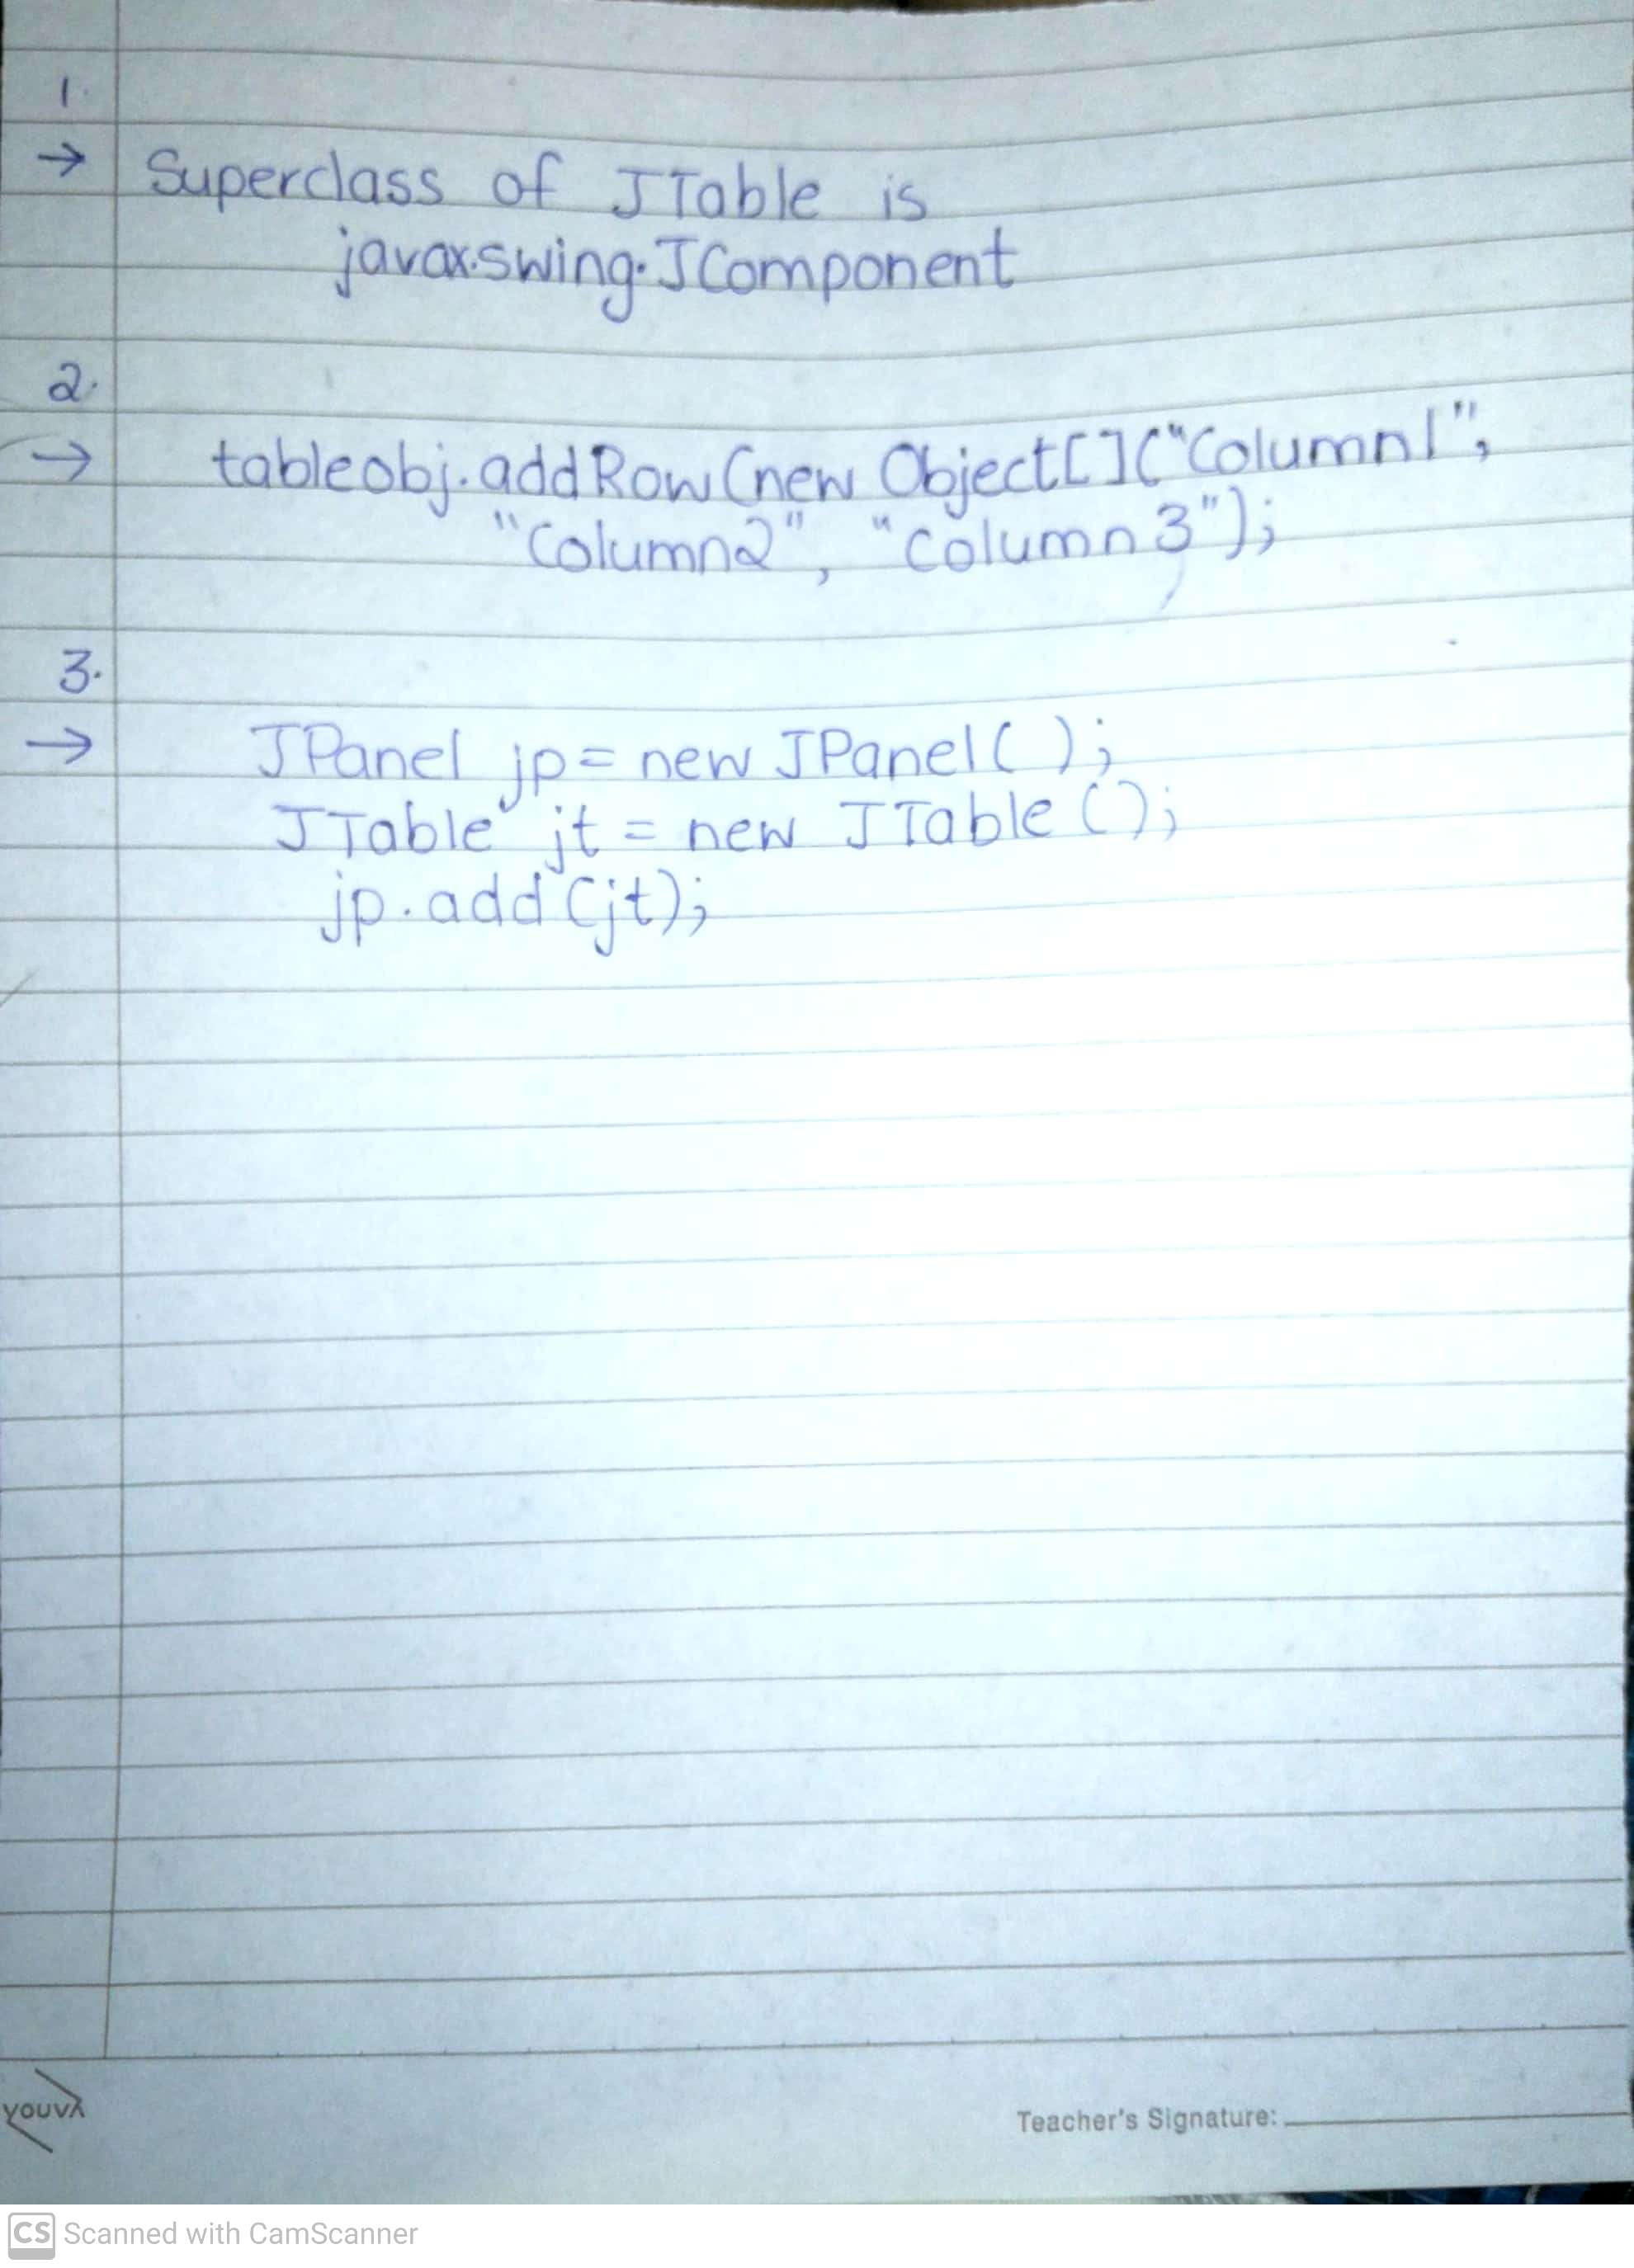 1.
→ Superclass of JTable is
javax.swing.JComponent
2.
→ tableobj.addRow(new Object[]("Column1",
"Column2", "Column3");
3.
→ JPanel jp = new JPanel( );
JTable jt = new JTable();
jp.add(jt);
youva
Teacher's Signature:
CS Scanned with CamScanner